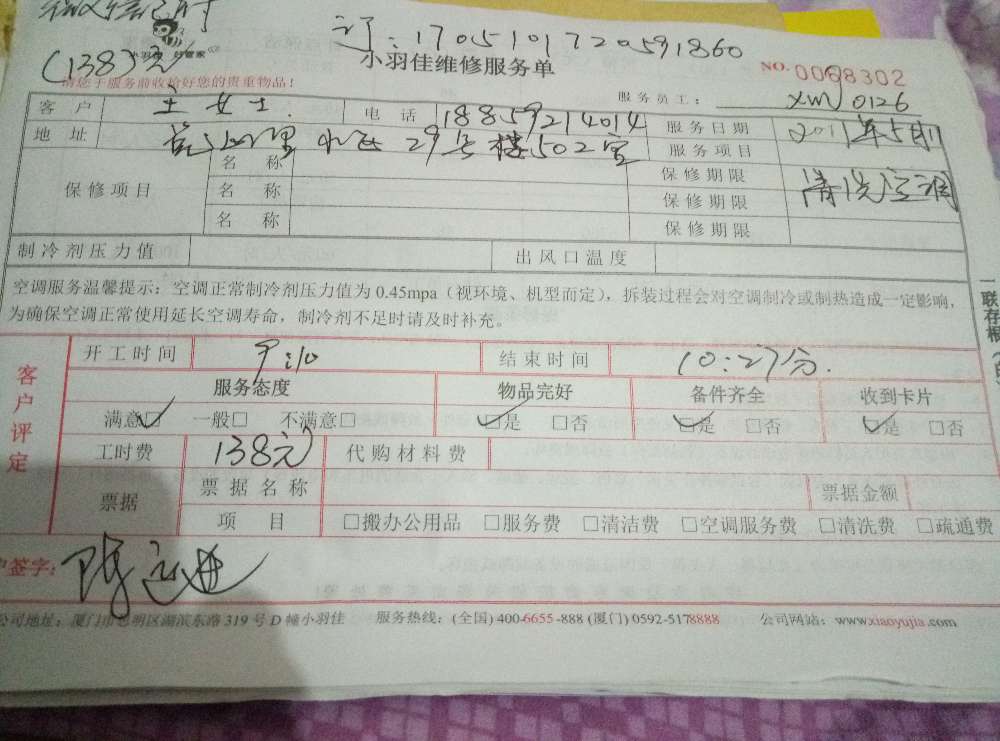 订:1705101720591860
(138)元
小羽佳维修服务单
NO. 0068302
请您于服务前收拾好您的贵重物品!
服务员工: XM 0126
客户 王女士 电话 18859214014 服务日期
地址 29号楼502室 服务项目 清洗空调
保修项目 名称 保修期限
名称 保修期限
名称 保修期限
制冷剂压力值 出风口温度
空调服务温馨提示:空调正常制冷剂压力值为0.45mpa(视环境、机型而定),拆装过程会对空调制冷或制热造成一定影响,
为确保空调正常使用延长空调寿命,制冷剂不足时请及时补充。
客户评定
开工时间 9:10 结束时间 10:27分.
服务态度 物品完好 备件齐全 收到卡片
满意□ 一般□ 不满意□ □是 □否 □是 □否 □是 □否
工时费 138元 代购材料费
票据 票据名称 票据金额
项目 □搬办公用品 □服务费 □清洁费 □空调服务费 □清洗费 □疏通费
签字:
公司地址:厦门市思明区湖滨东路319号D幢小羽佳 服务热线:(全国)400-6655-888(厦门)0592-5178888 公司网站:www.xiaoyujia.com